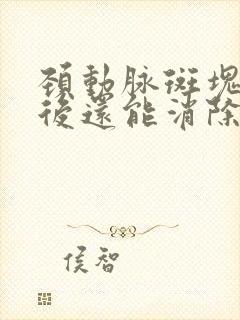 頚動脉斑塊
後還能消除
侯智